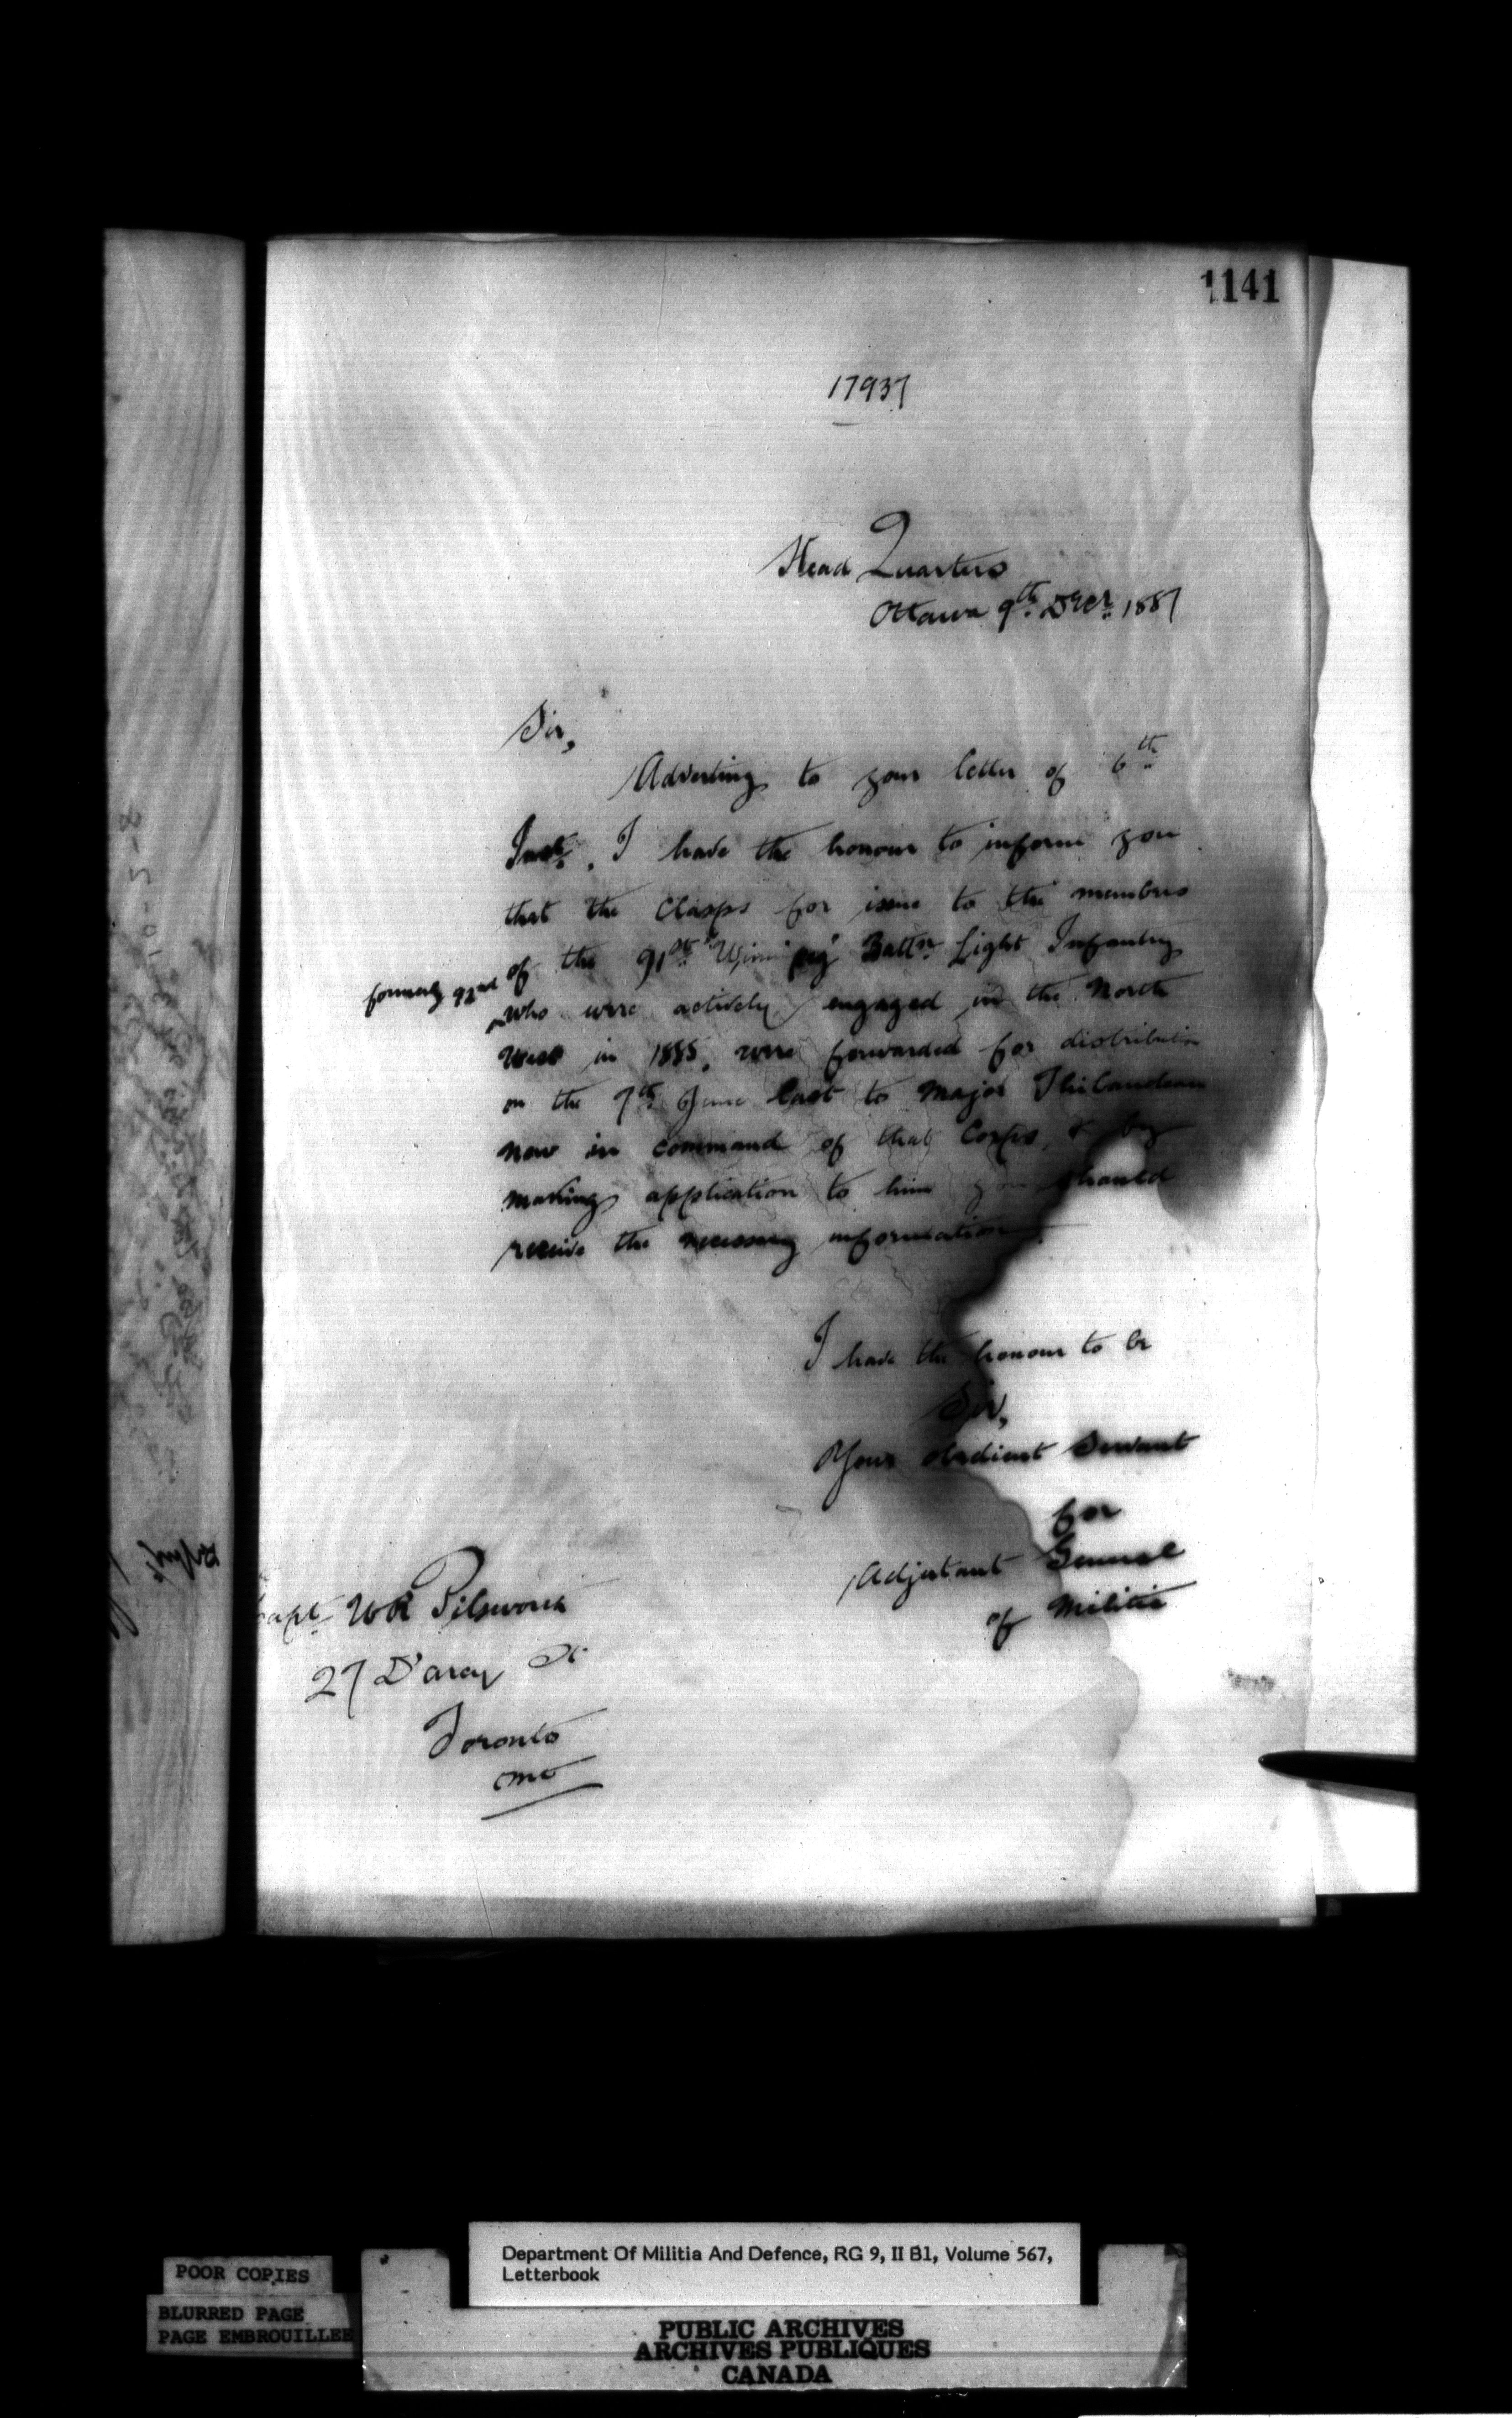 1141
17937
Head Quarters
Ottawa 9th Decr. 1887
Sir,
Adverting to your letter of 6th
Inst. I have the honour to inform you
that the Clasps for issue to the members
of the 91st "Winnipeg" Battn. Light Infantry
formerly 92nd
who were actively engaged in the North
West in 1885, were forwarded for distribution
on the 7th June last to Major Thibaudeau
now in command of that Corps, & by
making application to him you should
receive the necessary information.
I have the honour to be
Sir,
Your obedient Servant
for
Adjutant General
of Militia
Capt. W R Pilsworth
27 D'arcy St
Toronto
Ont
POOR COPIES
BLURRED PAGE
PAGE EMBROUILLEE
Department Of Militia And Defence, RG 9, II B1, Volume 567,
Letterbook
PUBLIC ARCHIVES
ARCHIVES PUBLIQUES
CANADA